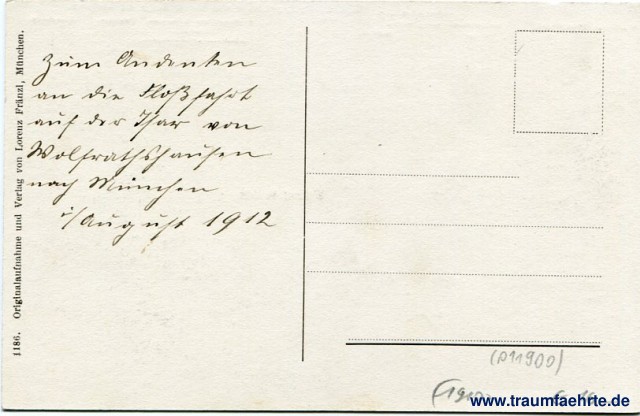 1186. Originalaufnahme und Verlag von Lorenz Fränzl, München.
Zum Andenken
an die Floßfahrt
auf der Isar von
Wolfrathshausen
nach München
i/August 1912
(A11900)
www.traumfaehrte.de